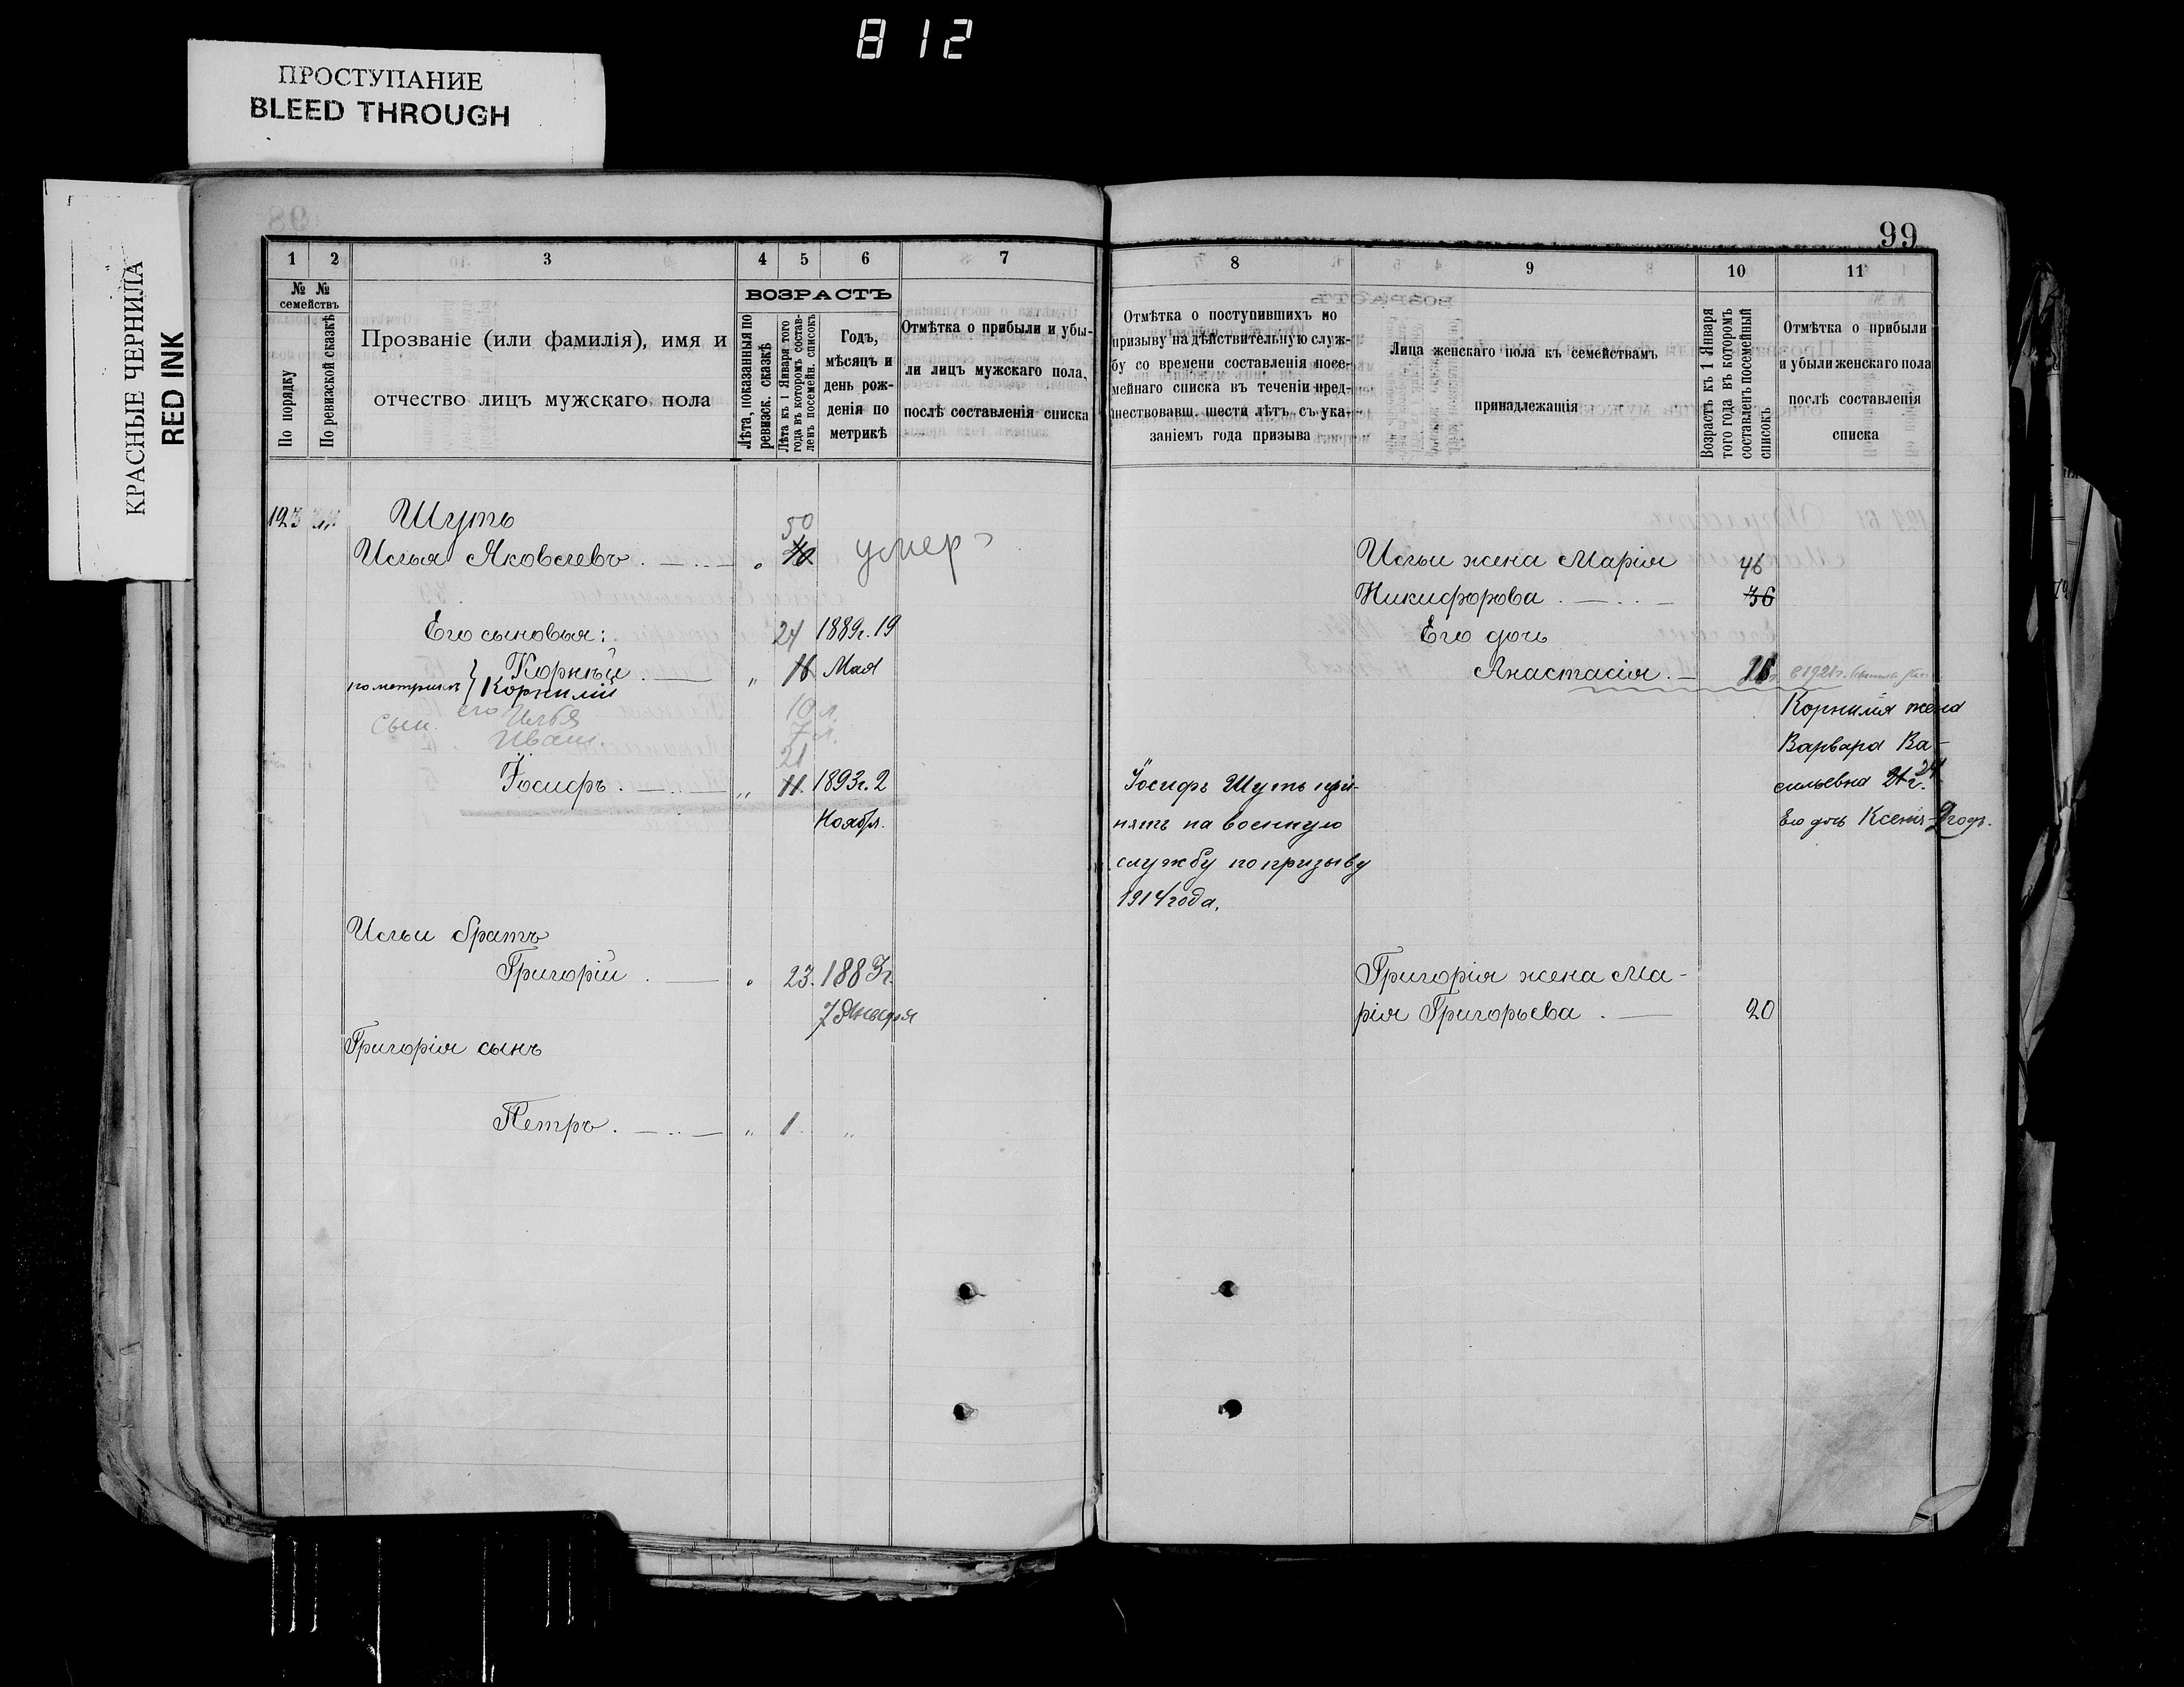 812
ПРОСТУПАНИЕ
BLEED THROUGH
КРАСНЫЕ ЧЕРНИЛА
RED INK
1 2 3 4 5 6 7
№ №
семействъ
По порядку
По ревизской сказкѣ
Прозваніе (или фамилія), имя и
отчество лицъ мужскаго пола
ВОЗРАСТЪ
Лѣта, показанныя по
ревизск. сказкѣ
Лѣта къ 1 Января того
года въ которомъ состав-
ленъ посемейн. списокъ
Годъ,
мѣсяцъ и
день рож-
денія по
метрикѣ
Отмѣтка о прибыли и убы-
ли лицъ мужскаго пола,
послѣ составленія списка
123
Шуть
50
Илья Яковлевъ 40 умер
Его сыновья: 24 1889г. 19
Корнѣй Мая
по метрикѣ } Корнилій
его Илья 10 л.
сын. Иван. 7 л.
21
Іосифъ 11. 1893г. 2
Ноября.
Ильи братъ
Григорій 23. 1883г.
7 Января
Григорія сынъ
Петръ 1
99
8 9 10 11
Отмѣтка о поступившихъ по
призыву на дѣйствительную служ-
бу со времени составленія посе-
мейнаго списка въ теченіи пред-
шествовавш. шести лѣтъ съ ука-
заніемъ года призыва
Лица женскаго пола къ семействамъ
принадлежащія
Возрастъ къ 1 Января
того года въ которомъ
составленъ посемейный
списокъ
Отмѣтка о прибыли
и убыли женскаго пола
послѣ составленія
списка
Ильи жена Марія 46
Никифорова 36
Его дочь
Анастасія в 1921г.
Корнилія жена
Варвара Ва-
сильевна 21 г. 24
Его дочь Ксенія 2 годъ.
Іосифъ Шуть при-
нятъ на военную
службу по призыву
1914 года.
Григорія жена Ма-
рія Григорьева 20